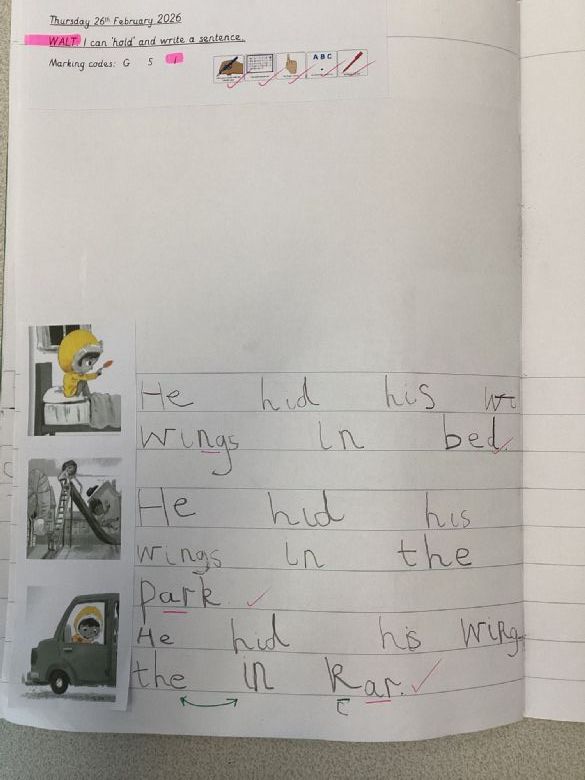 Thursday 26th February 2026
WALT I can 'hold' and write a sentence.
Marking codes: G S I
ABC
He hid his wi
wings in bed.
He hid his
wings in the
park.
He hid his wing
the in Kar.
c